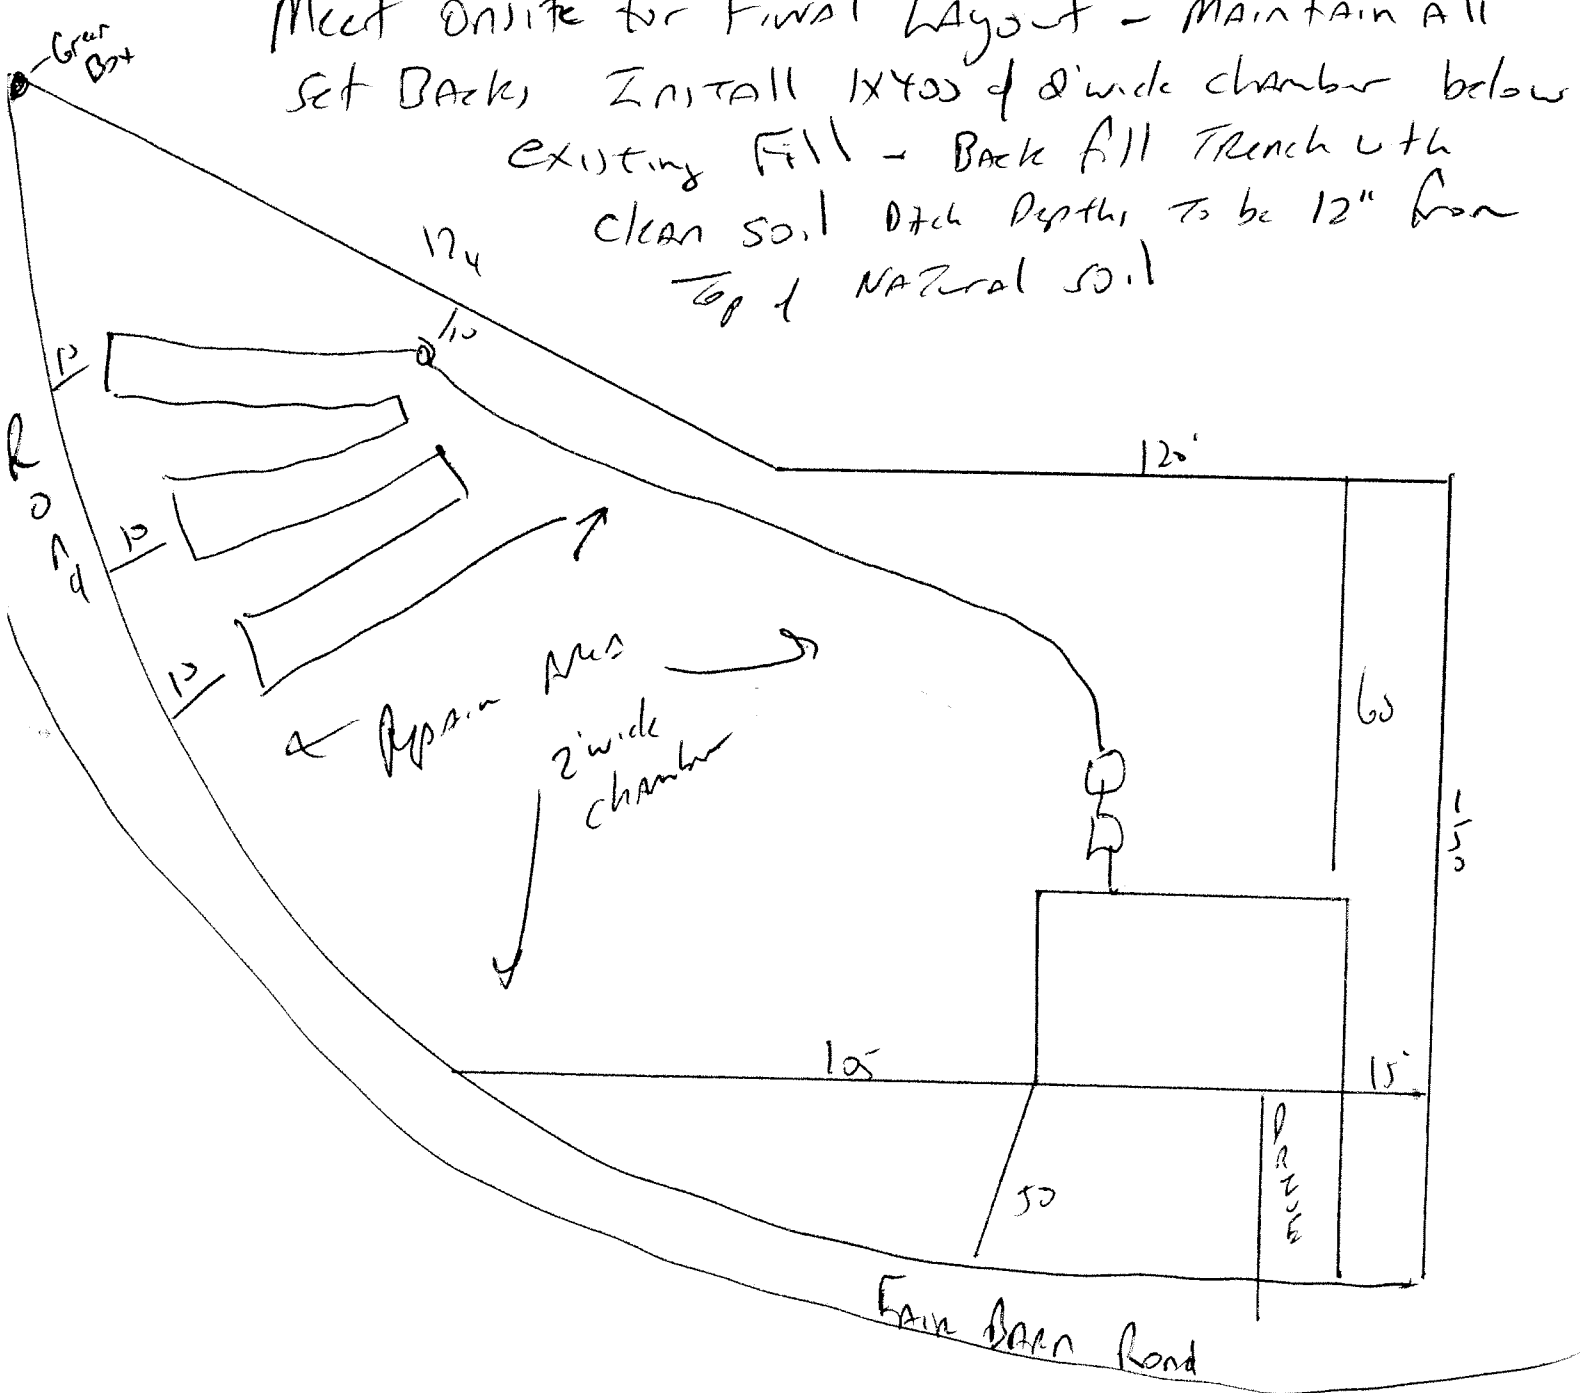 Meet Onsite for Final Layout - Maintain All
Set Backs Install 1X400 of 2' wide chamber below
existing Fill - Back fill Trench with
clean soil Ditch Depths To be 12" from
Top of Natural soil
Green
Box
124
10
10
Road
10
10
120'
60
150
← Repair Area
2' wide
chamber
105
15'
50
DRIVE
Fair Barn Road